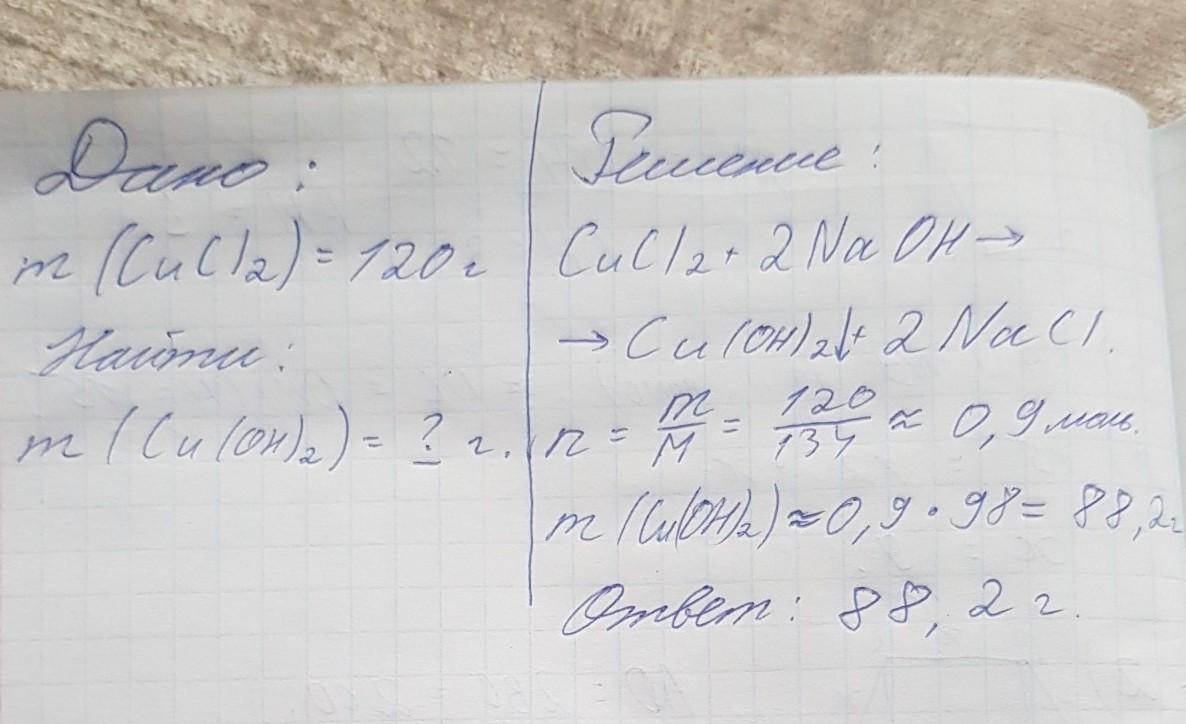 Дано:
m (CuCl₂) = 120 г
Найти:
m (Cu(OH)₂) = ? г.
Решение:
CuCl₂ + 2 NaOH →
→ Cu(OH)₂↓ + 2 NaCl.
n = m/M = 120/134 ≈ 0,9 моль.
m (Cu(OH)₂) ≈ 0,9 • 98 = 88,2 г
Ответ: 88,2 г.